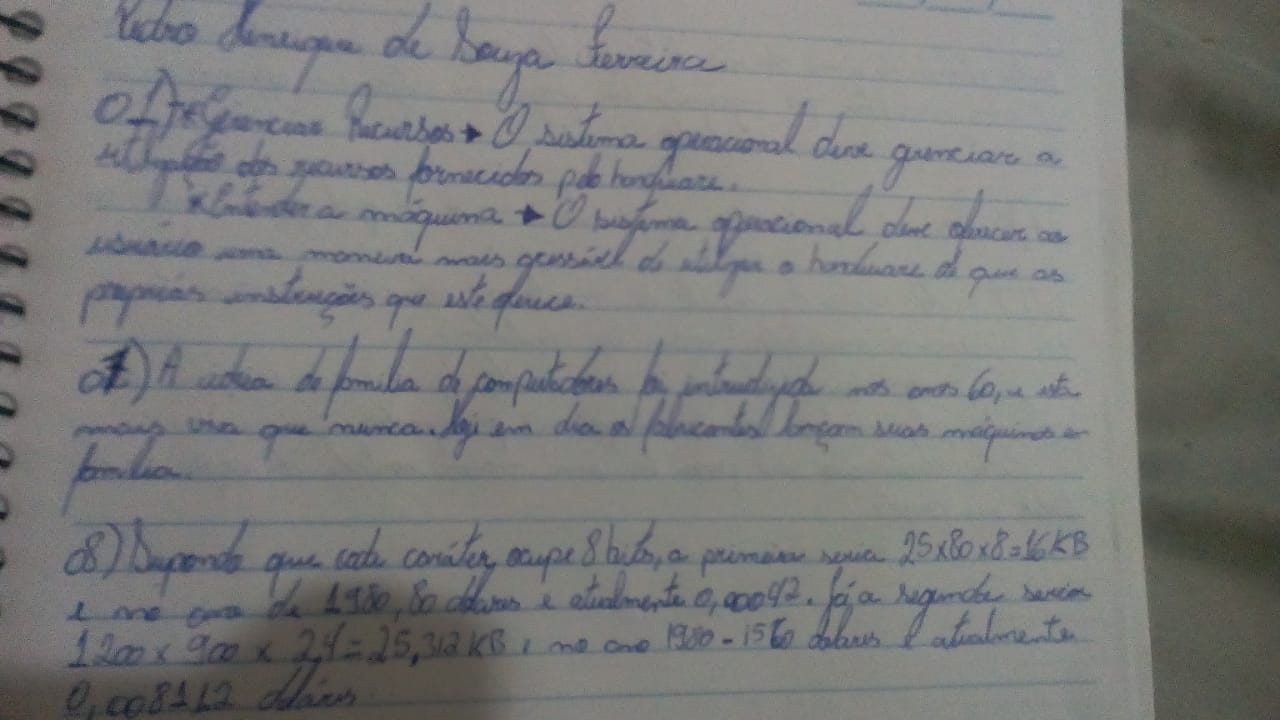 Pedro Henrique de Souza Ferreira
01) *Gerenciar Recursos → O sistema operacional deve gerenciar a
utilização dos recursos fornecidos pelo hardware.
*Estender a máquina → O sistema operacional deve oferecer ao
usuário uma maneira mais do utilizar o hardware do que as
próprias instruções que este oferece.
07) A ideia de família de computadores foi introduzida nos anos 60, e está
mais viva que nunca. Hoje em dia os fabricantes lançam suas máquinas e
família.
08) Supondo que cada caráter ocupe 8 bits, a primeira seria 25x80x8=16KB
e no ano de 1980, 80 dólares e atualmente 0,00042. Já, a segunda seria
1200 x 900 x 24 = 25,312 KB, no ano 1980 - 1560 dólares e atualmente
0,008112 dólares